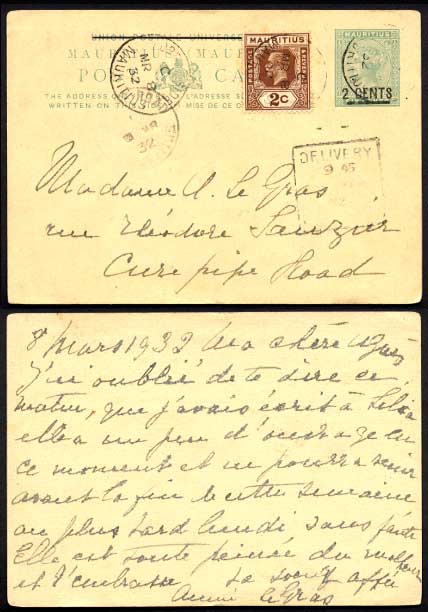 UNION POSTALE UNIVERSELLE
MAURITIUS (MAURICE)
POST CARD
THE ADDRESS ON L'ADRESSE SUR
WRITTEN ON MISE DE CE CÔ
MAURITIUS
POSTAGE & REVENUE
2c
MAURITIUS
2 CENTS
MAURITIUS
MR 8
32
DELIVERY
9 45
Madame A. Le Gras
rue Eléodore Sauzier
Curepipe Road
8 Mars 1932 Ma chère
J'ai oublié de te dire ce
matin, que j'avais écrit à
elle a un peu d'ouvrage en
ce moment et ne pourra venir
avant la fin de cette semaine
au plus tard lundi sans faute
Elle est toute peinée du malheur
et t'embrasse ta soeur affée
LeGras